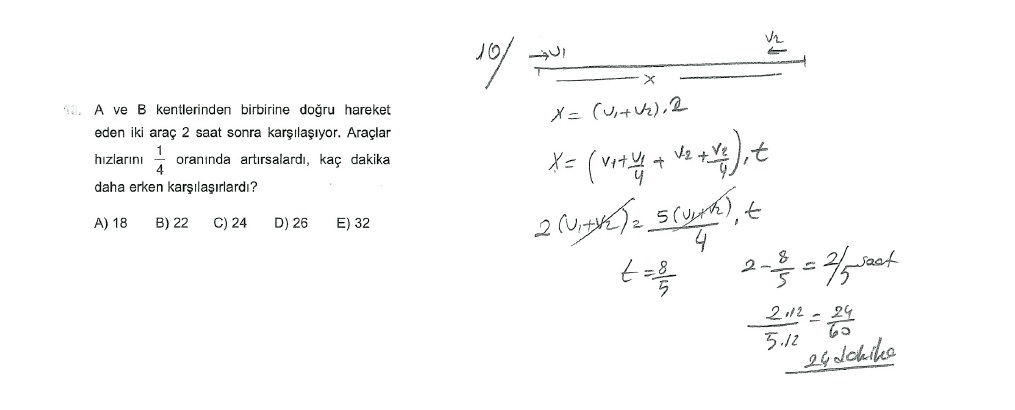 A ve B kentlerinden birbirine doğru hareket
eden iki araç 2 saat sonra karşılaşıyor. Araçlar
hızlarını 1/4 oranında artırsalardı, kaç dakika
daha erken karşılaşırlardı?
A) 18 B) 22 C) 24 D) 26 E) 32
10/ → V1 V2 ←
x
X = (V1+V2).2
X = (V1+V1/4 + V2+V2/4).t
2(V1+V2) = 5(V1+V2)/4 .t
t = 8/5
2-8/5 = 2/5 saat
2.12/5.12 = 24/60
24 dakika